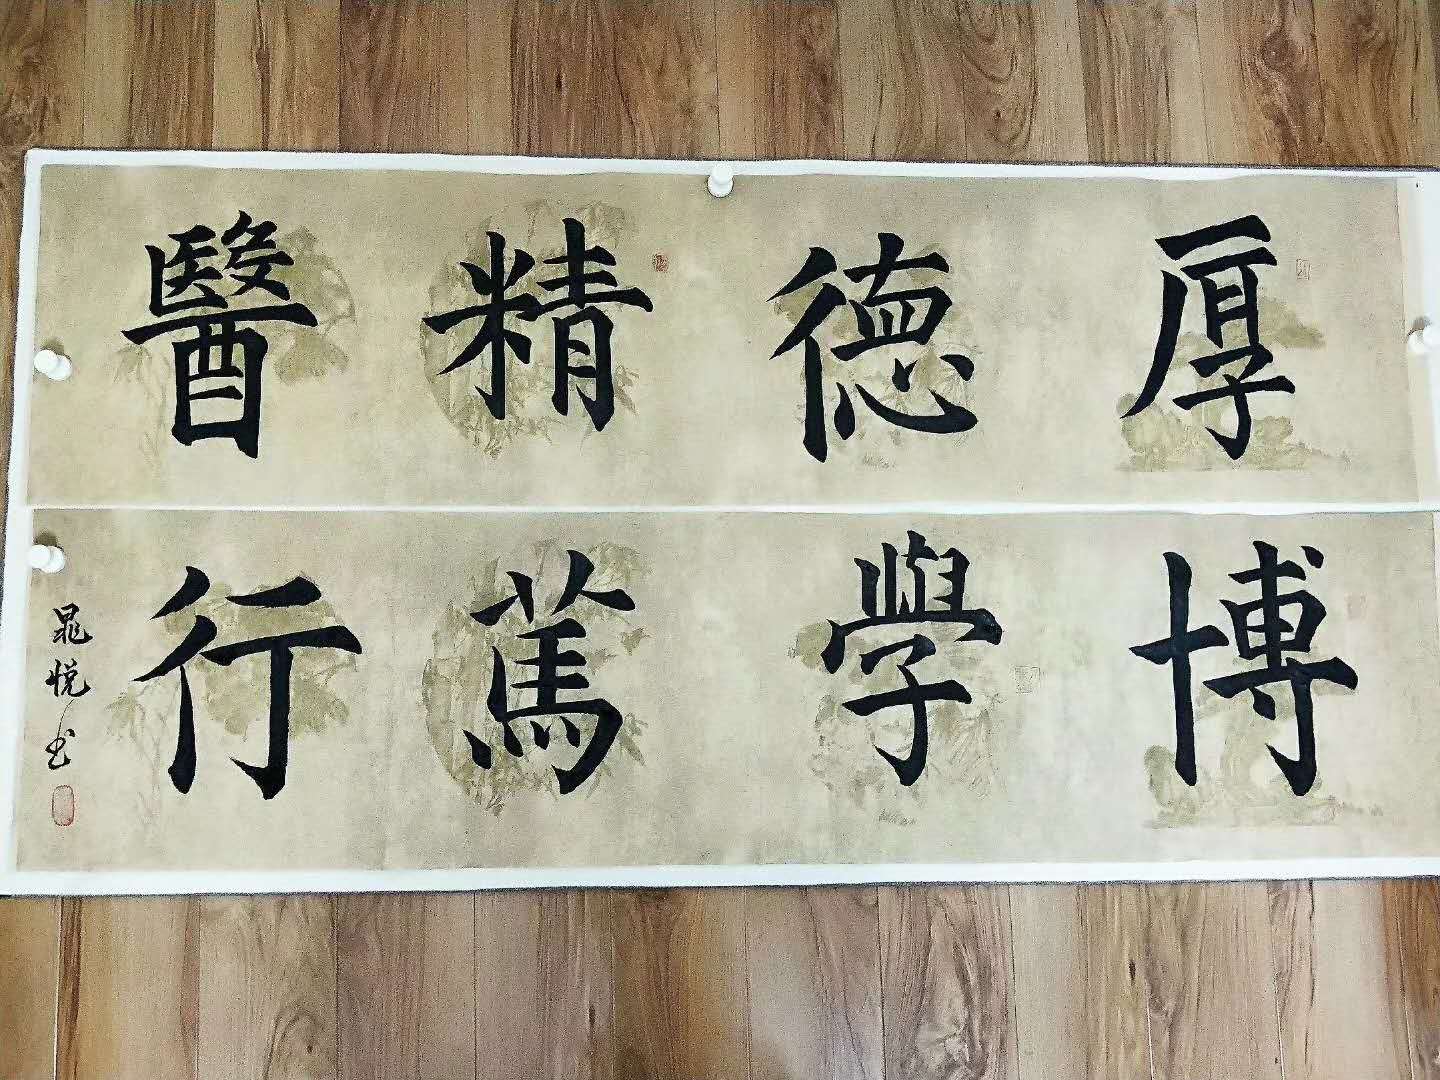 厚德精醫
博學篤行
晁悦书